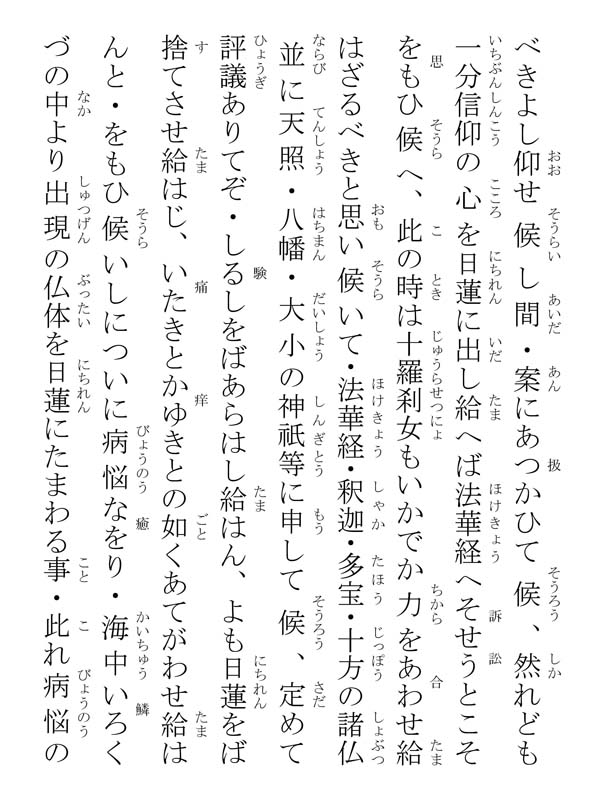 べきよし仰せ候し間・案にあつかひて候、然れども
一分信仰の心を日蓮に出し給へば法華経へそせうとこそ
をもひ候へ、此の時は十羅刹女もいかでか力をあわせ給
はざるべきと思い候いて・法華経・釈迦・多宝・十方の諸仏
並に天照・八幡・大小の神祇等に申して候、定めて
評議ありてぞ・しるしをばあらはし給はん、よも日蓮をば
捨てさせ給はじ、いたきとかゆきとの如くあてがわせ給は
んと・をもひ候いしについに病悩なをり・海中いろく
づの中より出現の仏体を日蓮にたまわる事・此れ病悩の